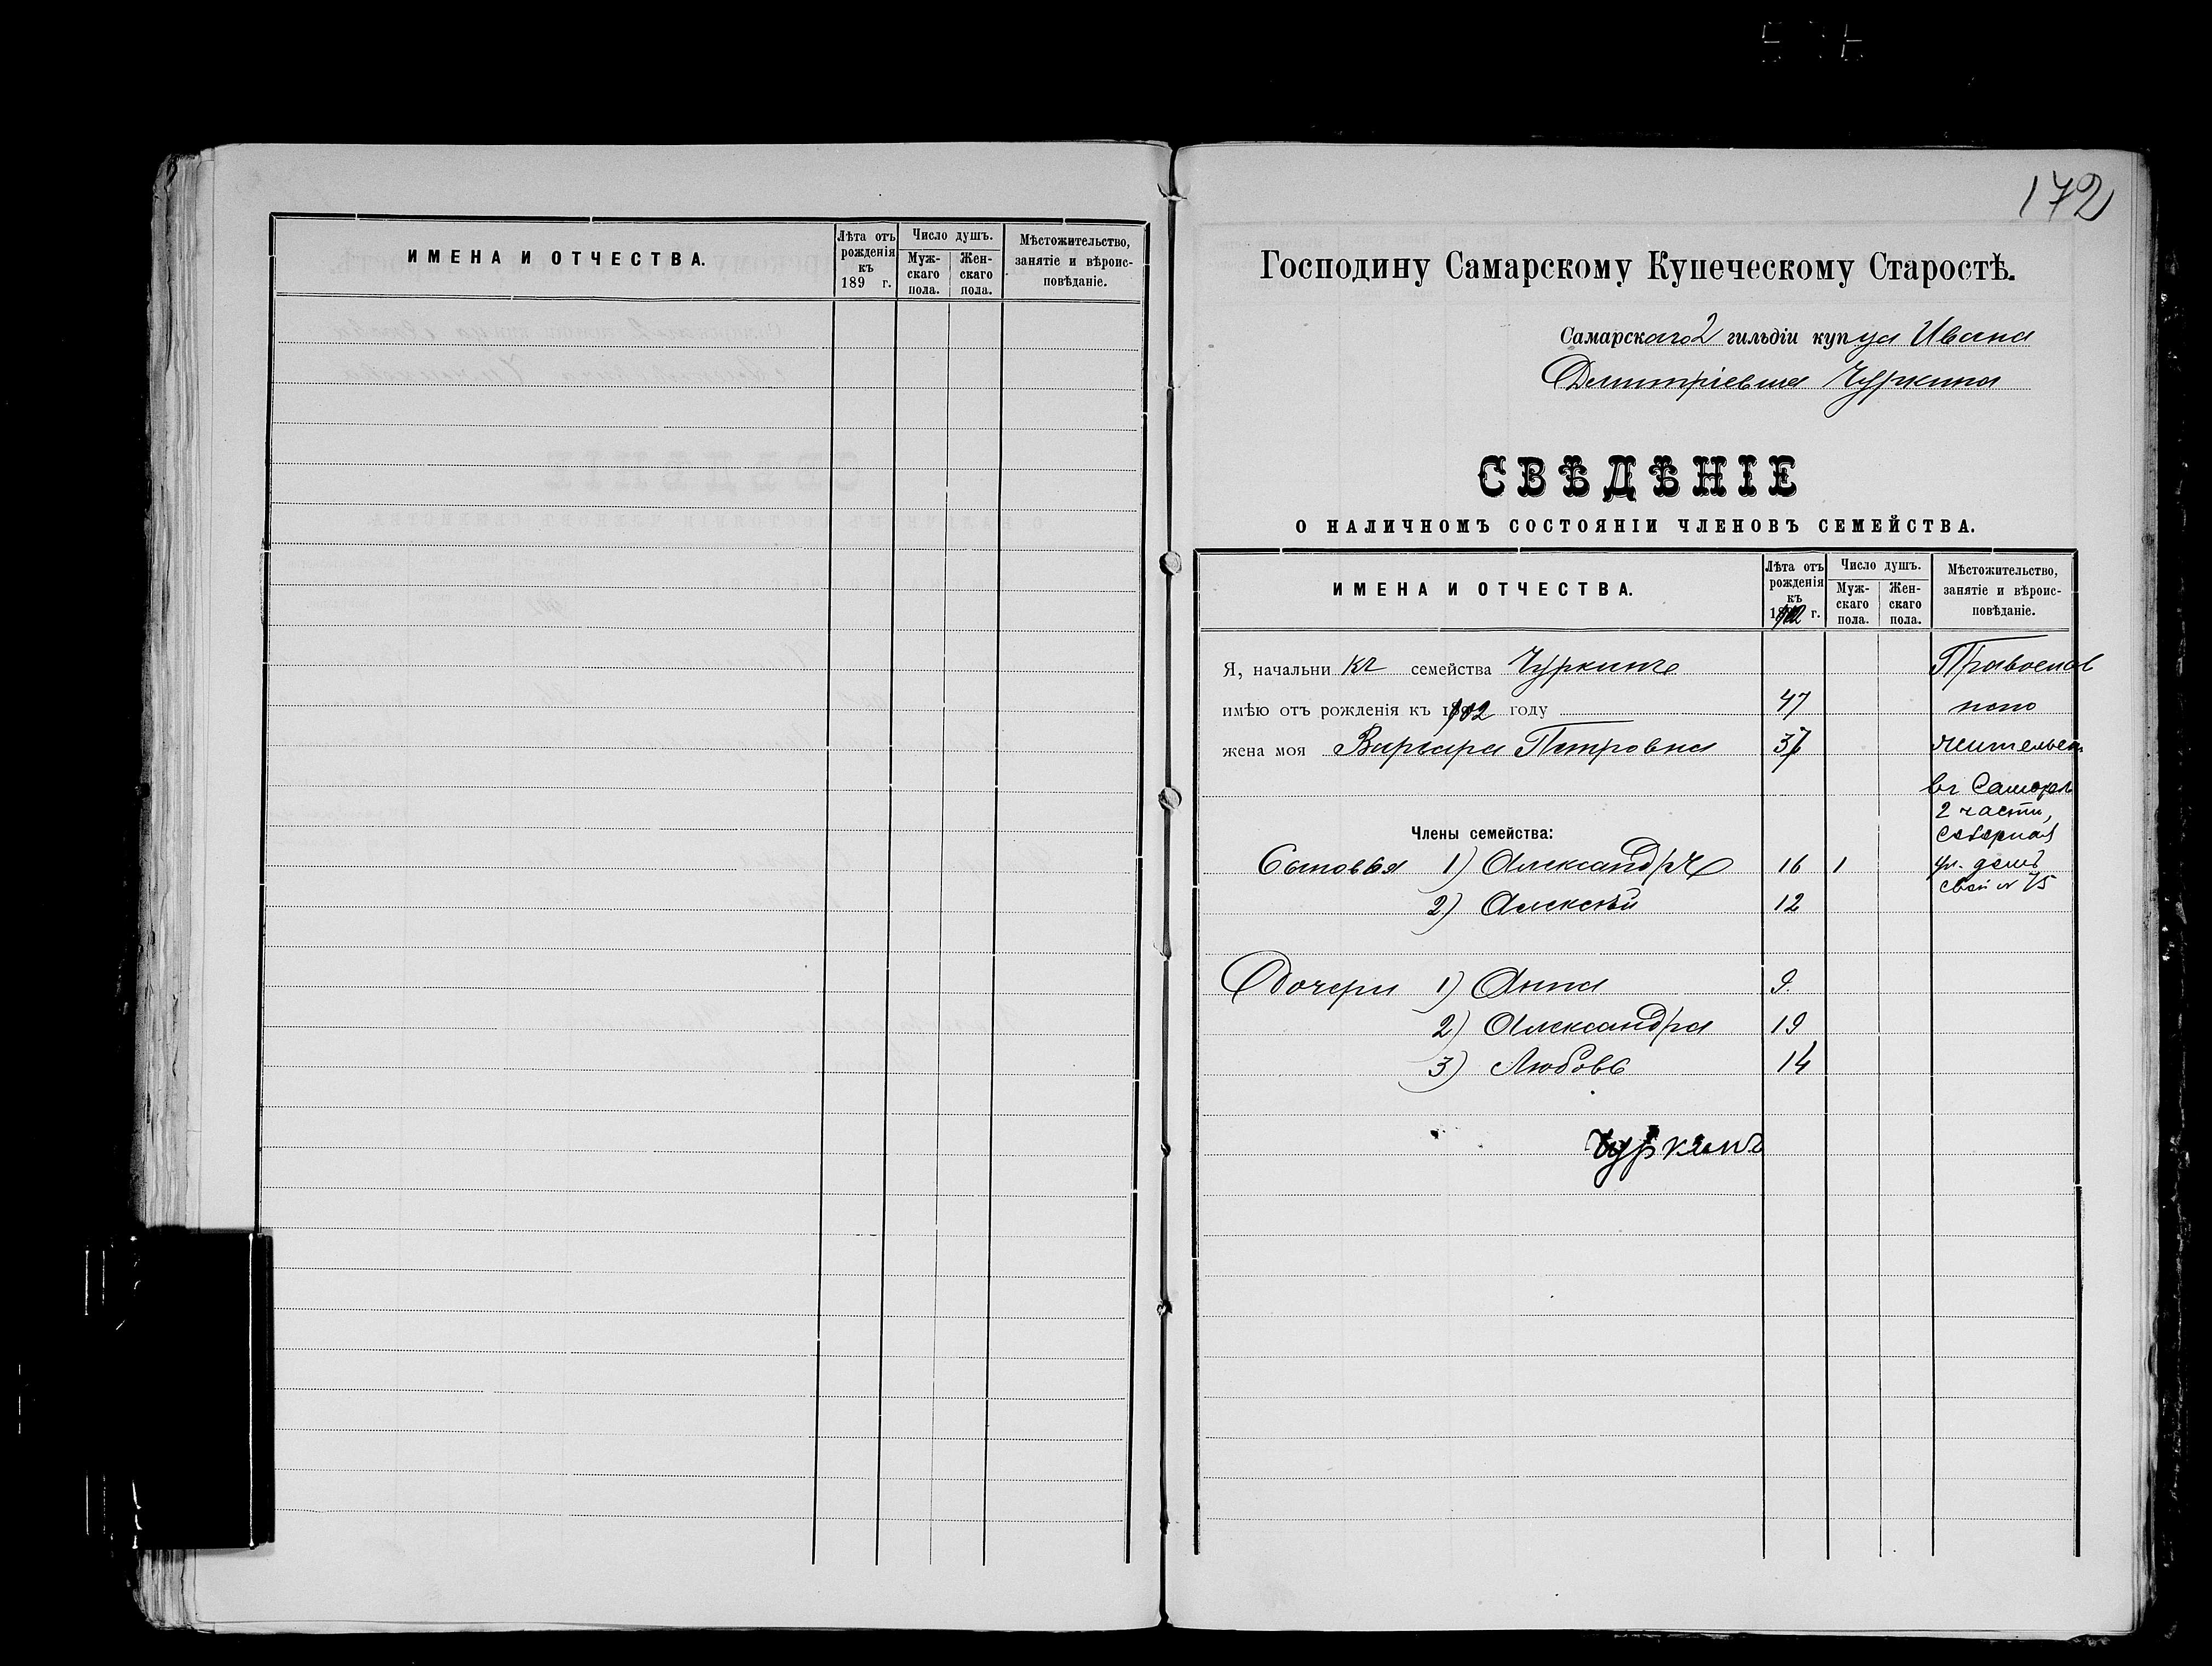 ИМЕНА И ОТЧЕСТВА.
Лѣта отъ рожденія къ 189 г.
Число душъ.
Мужскаго пола.
Женскаго пола.
Мѣстожительство, занятіе и вѣроисповѣданіе.
172
Господину Самарскому Купеческому Старостѣ.
Самарскаго 2 гильдіи купца Ивана
Дмитріевича Чуркина
СВѢДѢНІЕ
О НАЛИЧНОМЪ СОСТОЯНІИ ЧЛЕНОВЪ СЕМЕЙСТВА.
ИМЕНА И ОТЧЕСТВА.
Лѣта отъ рожденія къ 1902 г.
Число душъ.
Мужскаго пола.
Женскаго пола.
Мѣстожительство, занятіе и вѣроисповѣданіе.
Я, начальникъ семейства Чуркинъ Православ
имѣю отъ рожденія къ 1902 году 47
жена моя Варвара Петровна 37 жительст
въ Самарѣ
2 части,
Члены семейства: Соборная
Сыновья 1) Александръ 16 1 ул. домъ
свой № 75
2) Алексѣй 12
Дочери 1) Анна 9.
2) Александра 19
3) Любовь 14
Чуркинъ